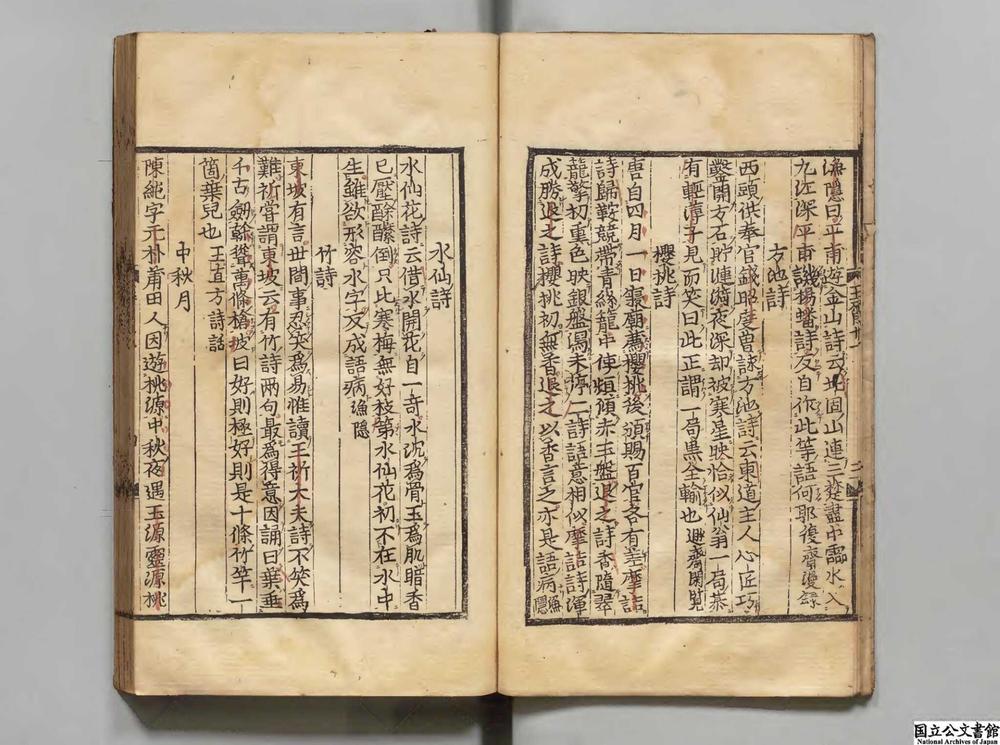 漁隱曰平甫遊金山詩云北固山連三楚盡中霝水入
九江深平甫譏楊蟠詩反自作此等語何耶復齋漫録
方池詩
西頭供奉官錢昭度曽詠方池詩云東道主人心匠巧
鑿開方石貯漣漪夜深却被寒星映恰似仙翁一局棊
有輕薄子見而笑曰此正謂一局黒全輸也遯齋閑覧
櫻桃詩
唐自四月一日寢廟薦櫻桃後頒賜百官各有差摩詰
詩歸鞍競帶青絲籠中使頻傾赤玉盤退之詩香隨翠
籠擎初重色映銀盤瀉未停二詩語意相似摩詰詩渾
成勝退之詩櫻桃初無香退之以香言之亦是語病漁隱
水仙詩
水仙花詩云借水開花自一竒水沉爲骨玉爲肌暗香
已壓酴醾倒只比寒梅無好枝第水仙花初不在水中
生雖欲形容水字反成語病漁隐
竹詩
東坡有言世間事忍笑爲易惟讀王祈大夫詩不笑爲
難祈嘗謂東坡云有竹詩兩句最爲得意因誦曰葉垂
千古劒榦聳萬條槍坡曰好則極好則是十條竹竿一
箇葉兒也王直方詩話
中秋月
陳純字元朴莆田人因遊桃源中秋夜遇玉源靈源桃
国立公文書館
National Archives of Japan